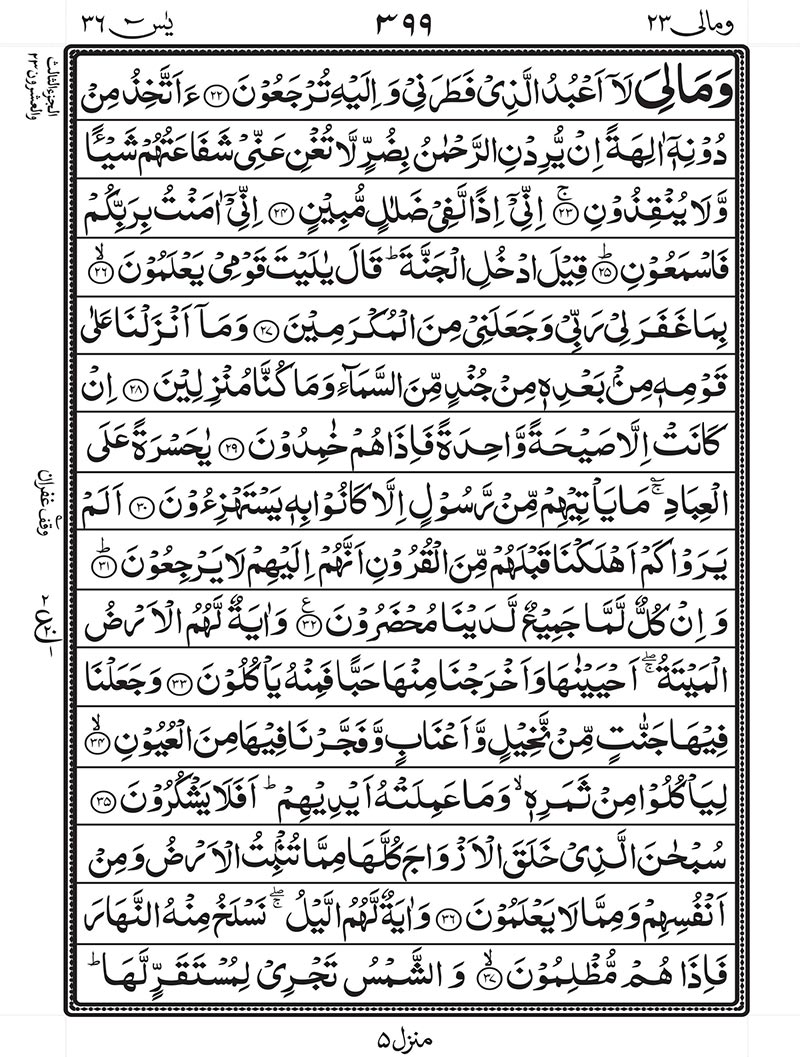 ومالی ٢٣
٣٩٩
یٰسٓ ٣٦
الجزء الثالث
والعشرون ٢٣
وَمَالِیَ لَاۤ اَعْبُدُ الَّذِیْ فَطَرَنِیْ وَ اِلَیْهِ تُرْجَعُوْنَ ﴿٢٢﴾ ءَ اَتَّخِذُ مِنْ
دُوْنِهٖۤ اٰلِهَةً اِنْ یُّرِدْنِ الرَّحْمٰنُ بِضُرٍّ لَّا تُغْنِ عَنِّیْ شَفَاعَتُهُمْ شَیْـًٔا
وَّلَا یُنْقِذُوْنِ ﴿٢٣﴾ۚ اِنِّیْۤ اِذًا لَّفِیْ ضَلٰلٍ مُّبِیْنٍ ﴿٢٤﴾ اِنِّیْۤ اٰمَنْتُ بِرَبِّكُمْ
فَاسْمَعُوْنِ ﴿٢٥﴾ؕ قِیْلَ ادْخُلِ الْجَنَّةَ ؕ قَالَ یٰلَیْتَ قَوْمِیْ یَعْلَمُوْنَ ﴿٢٦﴾ۙ
بِمَا غَفَرَ لِیْ رَبِّیْ وَجَعَلَنِیْ مِنَ الْمُكْرَمِیْنَ ﴿٢٧﴾ وَمَاۤ اَنْزَلْنَا عَلٰی
قَوْمِهٖ مِنْۢ بَعْدِهٖ مِنْ جُنْدٍ مِّنَ السَّمَآءِ وَمَا كُنَّا مُنْزِلِیْنَ ﴿٢٨﴾ اِنْ
كَانَتْ اِلَّا صَیْحَةً وَّاحِدَةً فَاِذَا هُمْ خٰمِدُوْنَ ﴿٢٩﴾ یٰحَسْرَةً عَلَی
الْعِبَادِ ۚؔ مَا یَاْتِیْهِمْ مِّنْ رَّسُوْلٍ اِلَّا كَانُوْا بِهٖ یَسْتَهْزِءُوْنَ ﴿٣٠﴾ اَلَمْ
وقف غفران
یَرَوْا كَمْ اَهْلَكْنَا قَبْلَهُمْ مِّنَ الْقُرُوْنِ اَنَّهُمْ اِلَیْهِمْ لَا یَرْجِعُوْنَ ﴿٣١﴾ؕ
وَ اِنْ كُلٌّ لَّمَّا جَمِیْعٌ لَّدَیْنَا مُحْضَرُوْنَ ﴿٣٢﴾ۧ وَاٰیَةٌ لَّهُمُ الْاَرْضُ
الْمَیْتَةُ ۚۖ اَحْیَیْنٰهَا وَاَخْرَجْنَا مِنْهَا حَبًّا فَمِنْهُ یَاْكُلُوْنَ ﴿٣٣﴾ وَجَعَلْنَا
فِیْهَا جَنّٰتٍ مِّنْ نَّخِیْلٍ وَّ اَعْنَابٍ وَّ فَجَّرْنَا فِیْهَا مِنَ الْعُیُوْنِ ﴿٣٤﴾ۙ
لِیَاْكُلُوْا مِنْ ثَمَرِهٖ ۙ وَمَا عَمِلَتْهُ اَیْدِیْهِمْ ؕ اَفَلَا یَشْكُرُوْنَ ﴿٣٥﴾
سُبْحٰنَ الَّذِیْ خَلَقَ الْاَزْوَاجَ كُلَّهَا مِمَّا تُنْۢبِتُ الْاَرْضُ وَمِنْ
اَنْفُسِهِمْ وَمِمَّا لَا یَعْلَمُوْنَ ﴿٣٦﴾ وَاٰیَةٌ لَّهُمُ الَّیْلُ ۚۖ نَسْلَخُ مِنْهُ النَّهَارَ
فَاِذَا هُمْ مُّظْلِمُوْنَ ﴿٣٧﴾ۙ وَ الشَّمْسُ تَجْرِیْ لِمُسْتَقَرٍّ لَّهَا ؕ
منزل ٥